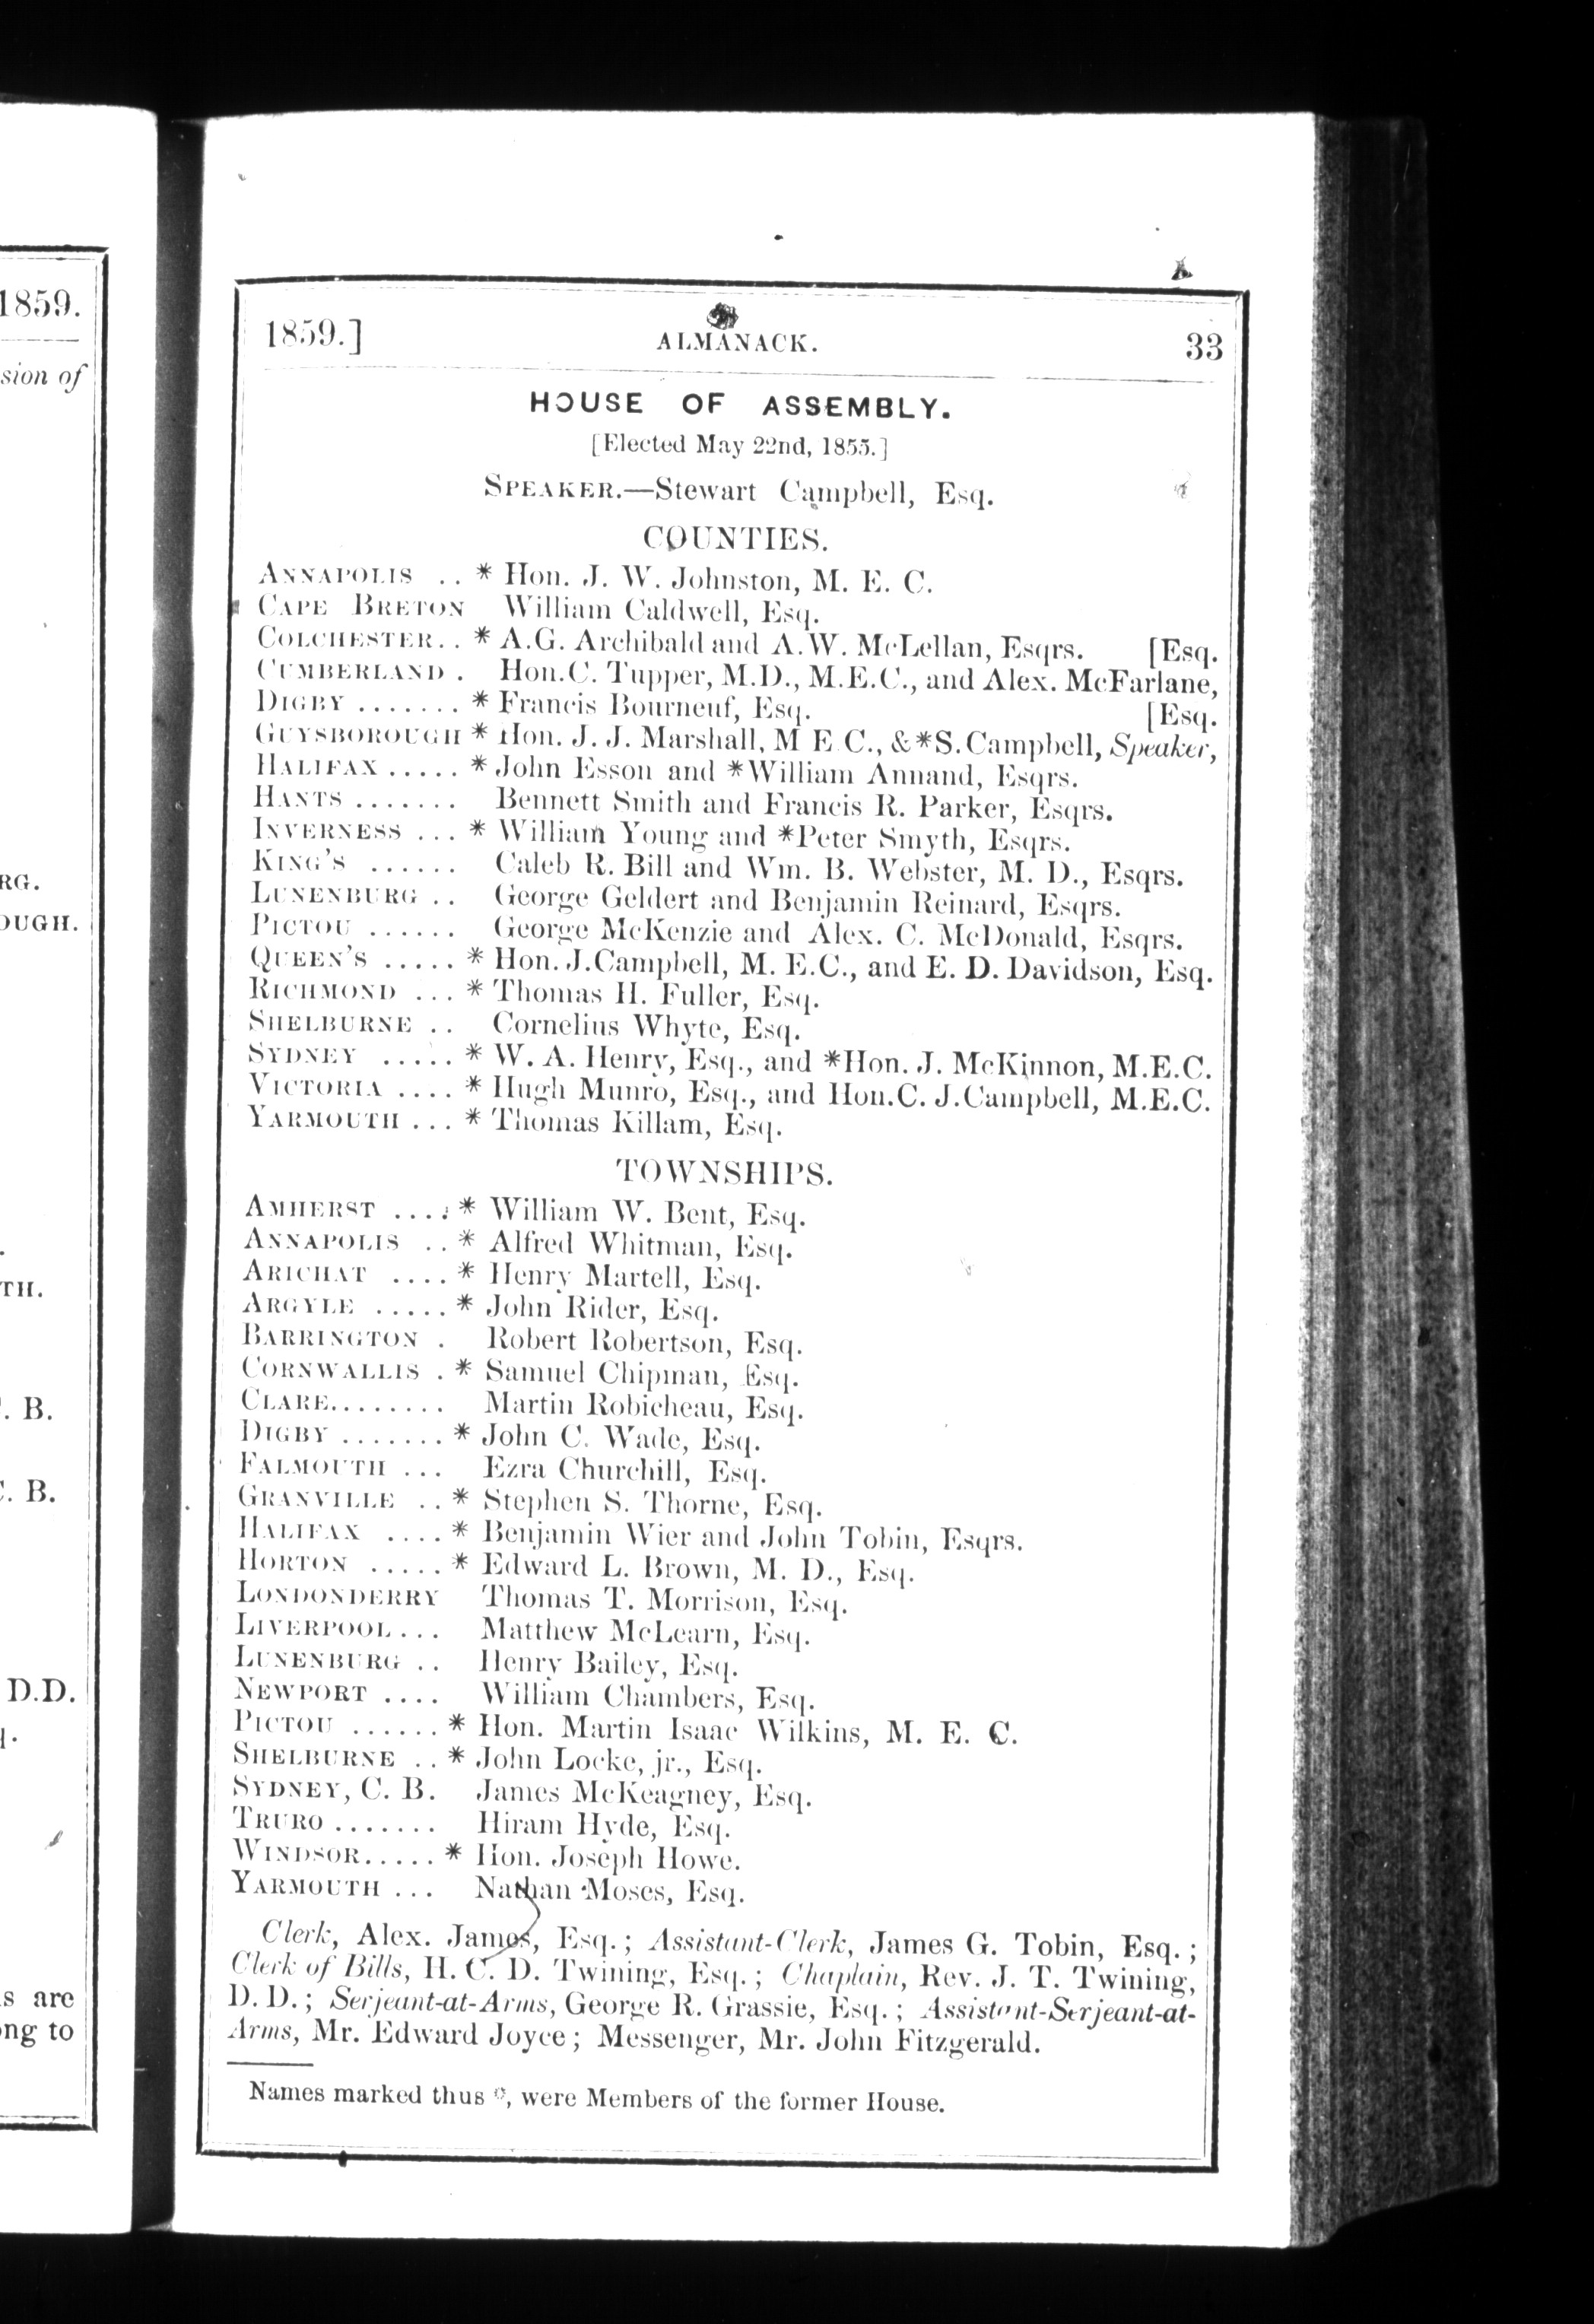 1859.
sion of
RG.
OUGH.
TH.
. B.
C. B.
D.D.
s are
ong to
1859.] ALMANACK. 33
HOUSE OF ASSEMBLY.
[Elected May 22nd, 1855.]
SPEAKER.—Stewart Campbell, Esq.
COUNTIES.
ANNAPOLIS .. * Hon. J. W. Johnston, M. E. C.
CAPE BRETON William Caldwell, Esq.
COLCHESTER.. * A.G. Archibald and A.W. McLellan, Esqrs. [Esq.
CUMBERLAND . Hon.C. Tupper, M.D., M.E.C., and Alex. McFarlane,
DIGBY ....... * Francis Bourneuf, Esq. [Esq.
GUYSBOROUGH * Hon. J. J. Marshall, M E.C., &*S.Campbell, Speaker,
HALIFAX ..... * John Esson and *William Annand, Esqrs.
HANTS ....... Bennett Smith and Francis R. Parker, Esqrs.
INVERNESS ... * William Young and *Peter Smyth, Esqrs.
KING'S ...... Caleb R. Bill and Wm. B. Webster, M. D., Esqrs.
LUNENBURG .. George Geldert and Benjamin Reinard, Esqrs.
PICTOU ...... George McKenzie and Alex. C. McDonald, Esqrs.
QUEEN'S ..... * Hon. J.Campbell, M. E.C., and E. D. Davidson, Esq.
RICHMOND ... * Thomas H. Fuller, Esq.
SHELBURNE .. Cornelius Whyte, Esq.
SYDNEY ..... * W. A. Henry, Esq., and *Hon. J. McKinnon, M.E.C.
VICTORIA .... * Hugh Munro, Esq., and Hon.C. J.Campbell, M.E.C.
YARMOUTH ... * Thomas Killam, Esq.
TOWNSHIPS.
AMHERST .... * William W. Bent, Esq.
ANNAPOLIS .. * Alfred Whitman, Esq.
ARICHAT .... * Henry Martell, Esq.
ARGYLE ..... * John Rider, Esq.
BARRINGTON . Robert Robertson, Esq.
CORNWALLIS . * Samuel Chipman, Esq.
CLARE........ Martin Robicheau, Esq.
DIGBY ....... * John C. Wade, Esq.
FALMOUTH ... Ezra Churchill, Esq.
GRANVILLE .. * Stephen S. Thorne, Esq.
HALIFAX .... * Benjamin Wier and John Tobin, Esqrs.
HORTON ..... * Edward L. Brown, M. D., Esq.
LONDONDERRY Thomas T. Morrison, Esq.
LIVERPOOL... Matthew McLearn, Esq.
LUNENBURG .. Henry Bailey, Esq.
NEWPORT .... William Chambers, Esq.
PICTOU ...... * Hon. Martin Isaac Wilkins, M. E. C.
SHELBURNE .. * John Locke, jr., Esq.
SYDNEY, C. B. James McKeagney, Esq.
TRURO ....... Hiram Hyde, Esq.
WINDSOR..... * Hon. Joseph Howe.
YARMOUTH ... Nathan Moses, Esq.
Clerk, Alex. James, Esq.; Assistant-Clerk, James G. Tobin, Esq.;
Clerk of Bills, H. C. D. Twining, Esq.; Chaplain, Rev. J. T. Twining,
D. D.; Serjeant-at-Arms, George R. Grassie, Esq.; Assistant-Serjeant-at-
Arms, Mr. Edward Joyce; Messenger, Mr. John Fitzgerald.
Names marked thus *, were Members of the former House.